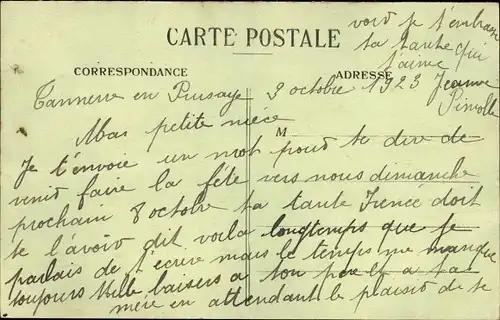 CARTE POSTALE
CORRESPONDANCE
ADRESSE
Tannerre en Puisaye 3 octobre 1923
Mas petite niéce
M
Je t'envoie un mot pour te dire de
venir faire la fête vers nous dimanche
prochain 8 octobre ta tante Irenée doit
te l'avoir dit voila longtemps que je
parlais de t'écrire mais le temps me manque
toujours Mille baisers a ton père et a ta
mère en attendant le plaisir de te
voir je t'embrasse
ta tante qui
t'aime
Jeanne